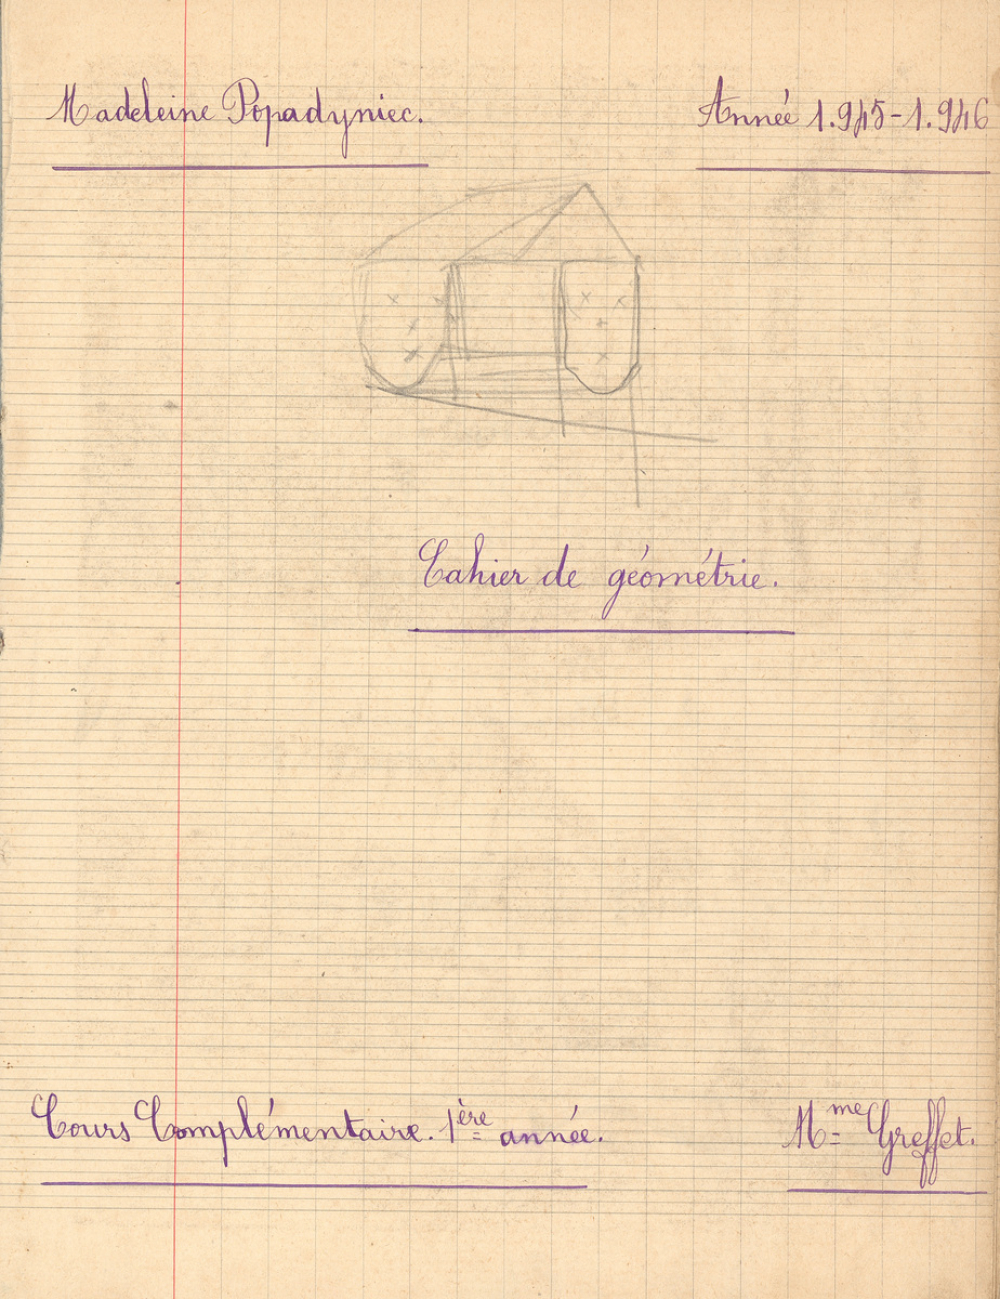 Madeleine Popadyniec.
Année 1.945-1.946
Cahier de géométrie.
Cours Complémentaire. 1ère année.
Mme Greffet.